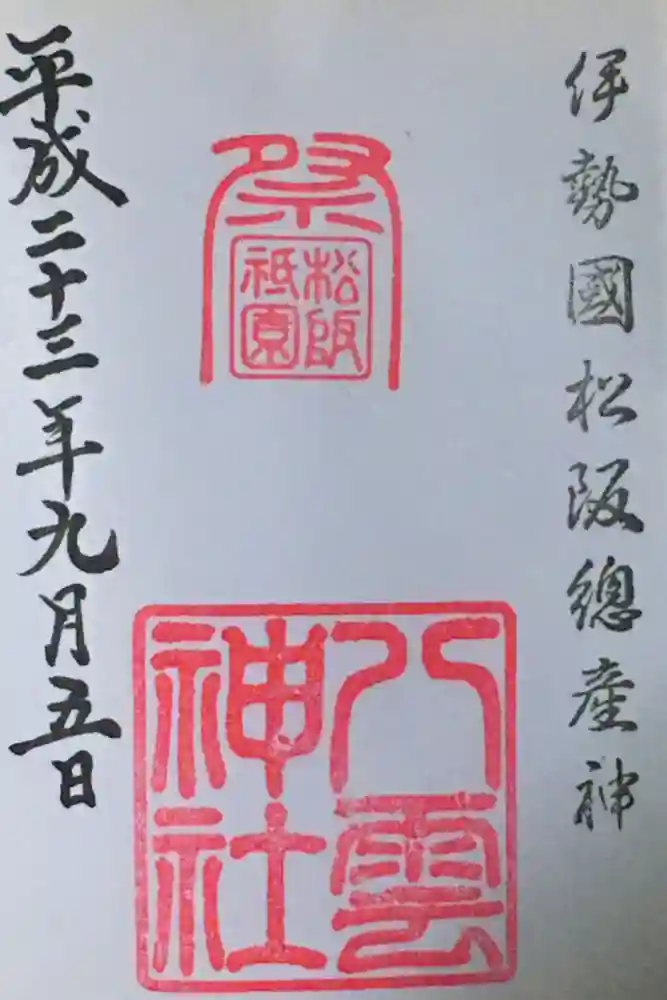 伊勢國松阪總産神
祭
松阪
祇園
八雲
神社
平成二十三年九月五日